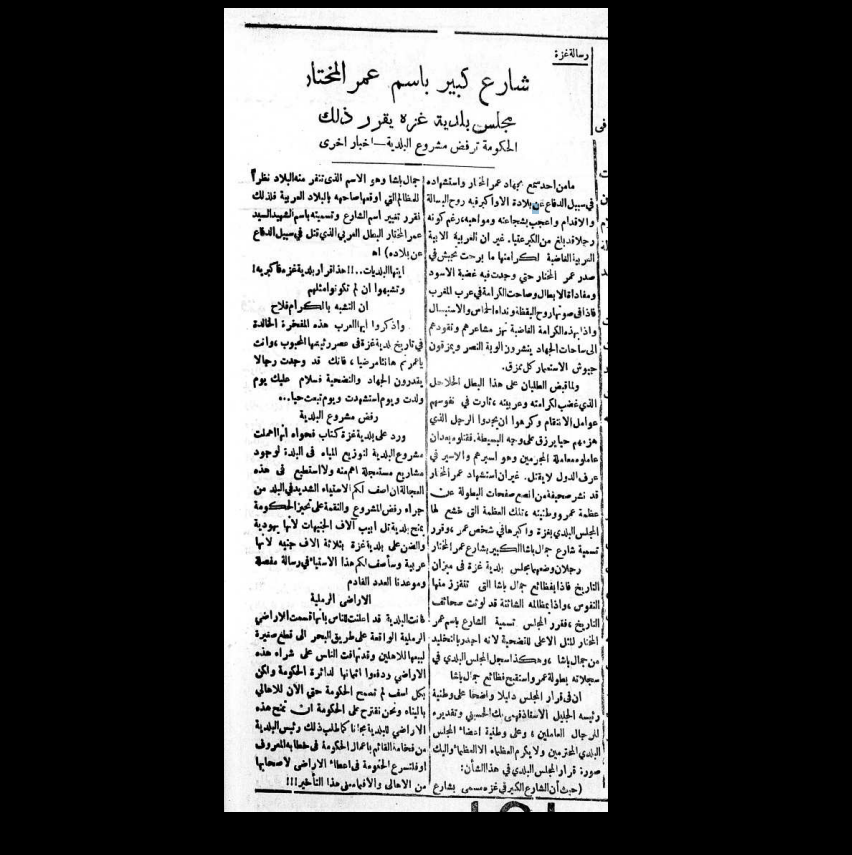 رسالة غزة
شارع كبير باسم عمر المختار
مجلس بلدية غزه يقرر ذلك
الحكومة ترفض مشروع البلدية - اخبار اخرى
مامن احد سمع بجهاد عمر المختار واستشهاده
في سبيل الدفاع عن بلاده الا واكبر فيه روح البسالة
والاقدام واعجب بشجاعته ومواهبه، رغم كونه
رجلا قد بلغ من الكبر عتيا. غير ان العربية الابية
العربية الغاضبة لكرامتها ما برحت تجيش في
صدر عمر المختار حتي وجدت فيه غضبة الاسود
ومفاداة الابطال وصاحت الكرامة في عرب المغرب
فاذا في صوتها روح اليقظة ونداء الحماس والاستبسال
واذا بهذه الكرامة الغاضبة تهز مشاعرهم وتقودهم
الى ساحات الجهاد ينشرون الوية النصر ويمزقون
جيوش الاستعمار كل ممزق.
ولما قبض الطليان على هذا البطل الحلاحل
الذي غضب لكرامته وعربيته، ثارت في نفوسهم
عوامل الانتقام وكرهوا ان يجدوا الرجل الذي
هزمهم حيا يرزق على وجه البسيطة. فقتلوه بعد ان
عاملوه معاملة المجرمين وهو اسيرهم والاسير في
عرف الدول لا يقتل. غير ان استشهاد عمر المختار
قد نشر صحيفة من انصع صفحات البطولة عن
عظمة عمر ووطنيته، تلك العظمة التى خشع لها
المجلس البلدي بغزة واكبرها في شخص عمر، وقرر
تسمية شارع جمال باشا الكبير بشارع عمر المختار
رجلان وضعهما مجلس بلدية غزة فى ميزان
التاريخ فاذا بفظائع جمال باشا التى تتقزز منها
النفوس، واذا بمظالمه الشائنة قد لوثت صحائف
التاريخ، فقرر المجلس تسمية الشارع باسم عمر
المختار المثل الاعلى للتضحية لانه اجدر بالتخليد
من جمال باشا، وهكذا سجل المجلس البلدي في
سجلاته بطولة عمر واستقبح فظائع جمال باشا
ان فى قرار المجلس دليلا واضحا على وطنية
رئيسه الجليل الاستاذ فهمي بك الحسيني وتقديره
للرجال العاملين، وعلى وطنية اعضاء المجلس
البلدي المحترمين ولا يكرم العظماء الا العظماء واليك
صورة قرار المجلس البلدي في هذا الشأن:
(حيث أن الشارع الكبير فى غزه مسمى بشارع
جمال باشا وهو الاسم الذى تنفر منه البلاد نظراً
للمظالم التي اوقعها صاحبه بالبلاد العربية فلذلك
تقرر تغيير اسم الشارع وتسميته باسم الشهيد السيد
عمر المختار البطل العربي الذي قتل في سبيل الدفاع
عن بلاده) اه
ايتها البلديات..!! هذا قرار بلدية غزة فاكبريه!
وتشبهوا ان لم تكونوا مثلهم
ان التشبه بالكرام فلاح
واذكروا ايها العرب هذه المفخرة الخالدة
في تاريخ بلدية غزة فى عصر رئيسها المحبوب، وانت
يا عمر نم هانئا مرضيا، فانك قد وجدت رجالا
يقدرون الجهاد والتضحية فسلام عليك يوم
ولدت ويوم استشهدت ويوم تبعث حيا..
رفض مشروع البلدية
ورد على بلدية غزة كتاب فحواه انها اهملت
مشروع البلدية لتوزيع المياه فى البلدة لوجود
مشاريع مستعجلة اهم منه ولا استطيع فى هذه
العجالة ان اصف لكم الاستياء الشديد في البلد من
جراء رفض المشروع والنقمة على تحيز الحكومة
بمنح بلدية تل ابيب آلاف الجنيهات لأنها يهودية
والضن على بلدية غزة بثلاثة الاف جنيه لانها
عربية وسأصف لكم هذا الاستياء في رسالة مفصلة
وموعدنا العدد القادم
الاراضى الرملية
كانت البلدية قد اعلنت للناس بانها قسمت الاراضي
الرملية الواقعة على طريق البحر الى قطع صغيرة
لبيعها للاهلين وقد تهافت الناس على شراء هذه
الاراضي ودفعوا اثمانها لدائرة الحكومة ولكن
بكل اسف لم تسمح الحكومة حتي الآن للاهالي
بالبناء ونحن نقترح على الحكومة ان تمنح هذه
الاراضي للبلدية مجانا كما طلب ذلك رئيس البلدية
من فخامة القائم باعمال الحكومة فى خطابه المعروف
او فلتسرع الحكومة فى اعطاء الاراضى لاصحابها
من الاهالى والا فما معنى هذا التأخير!!!